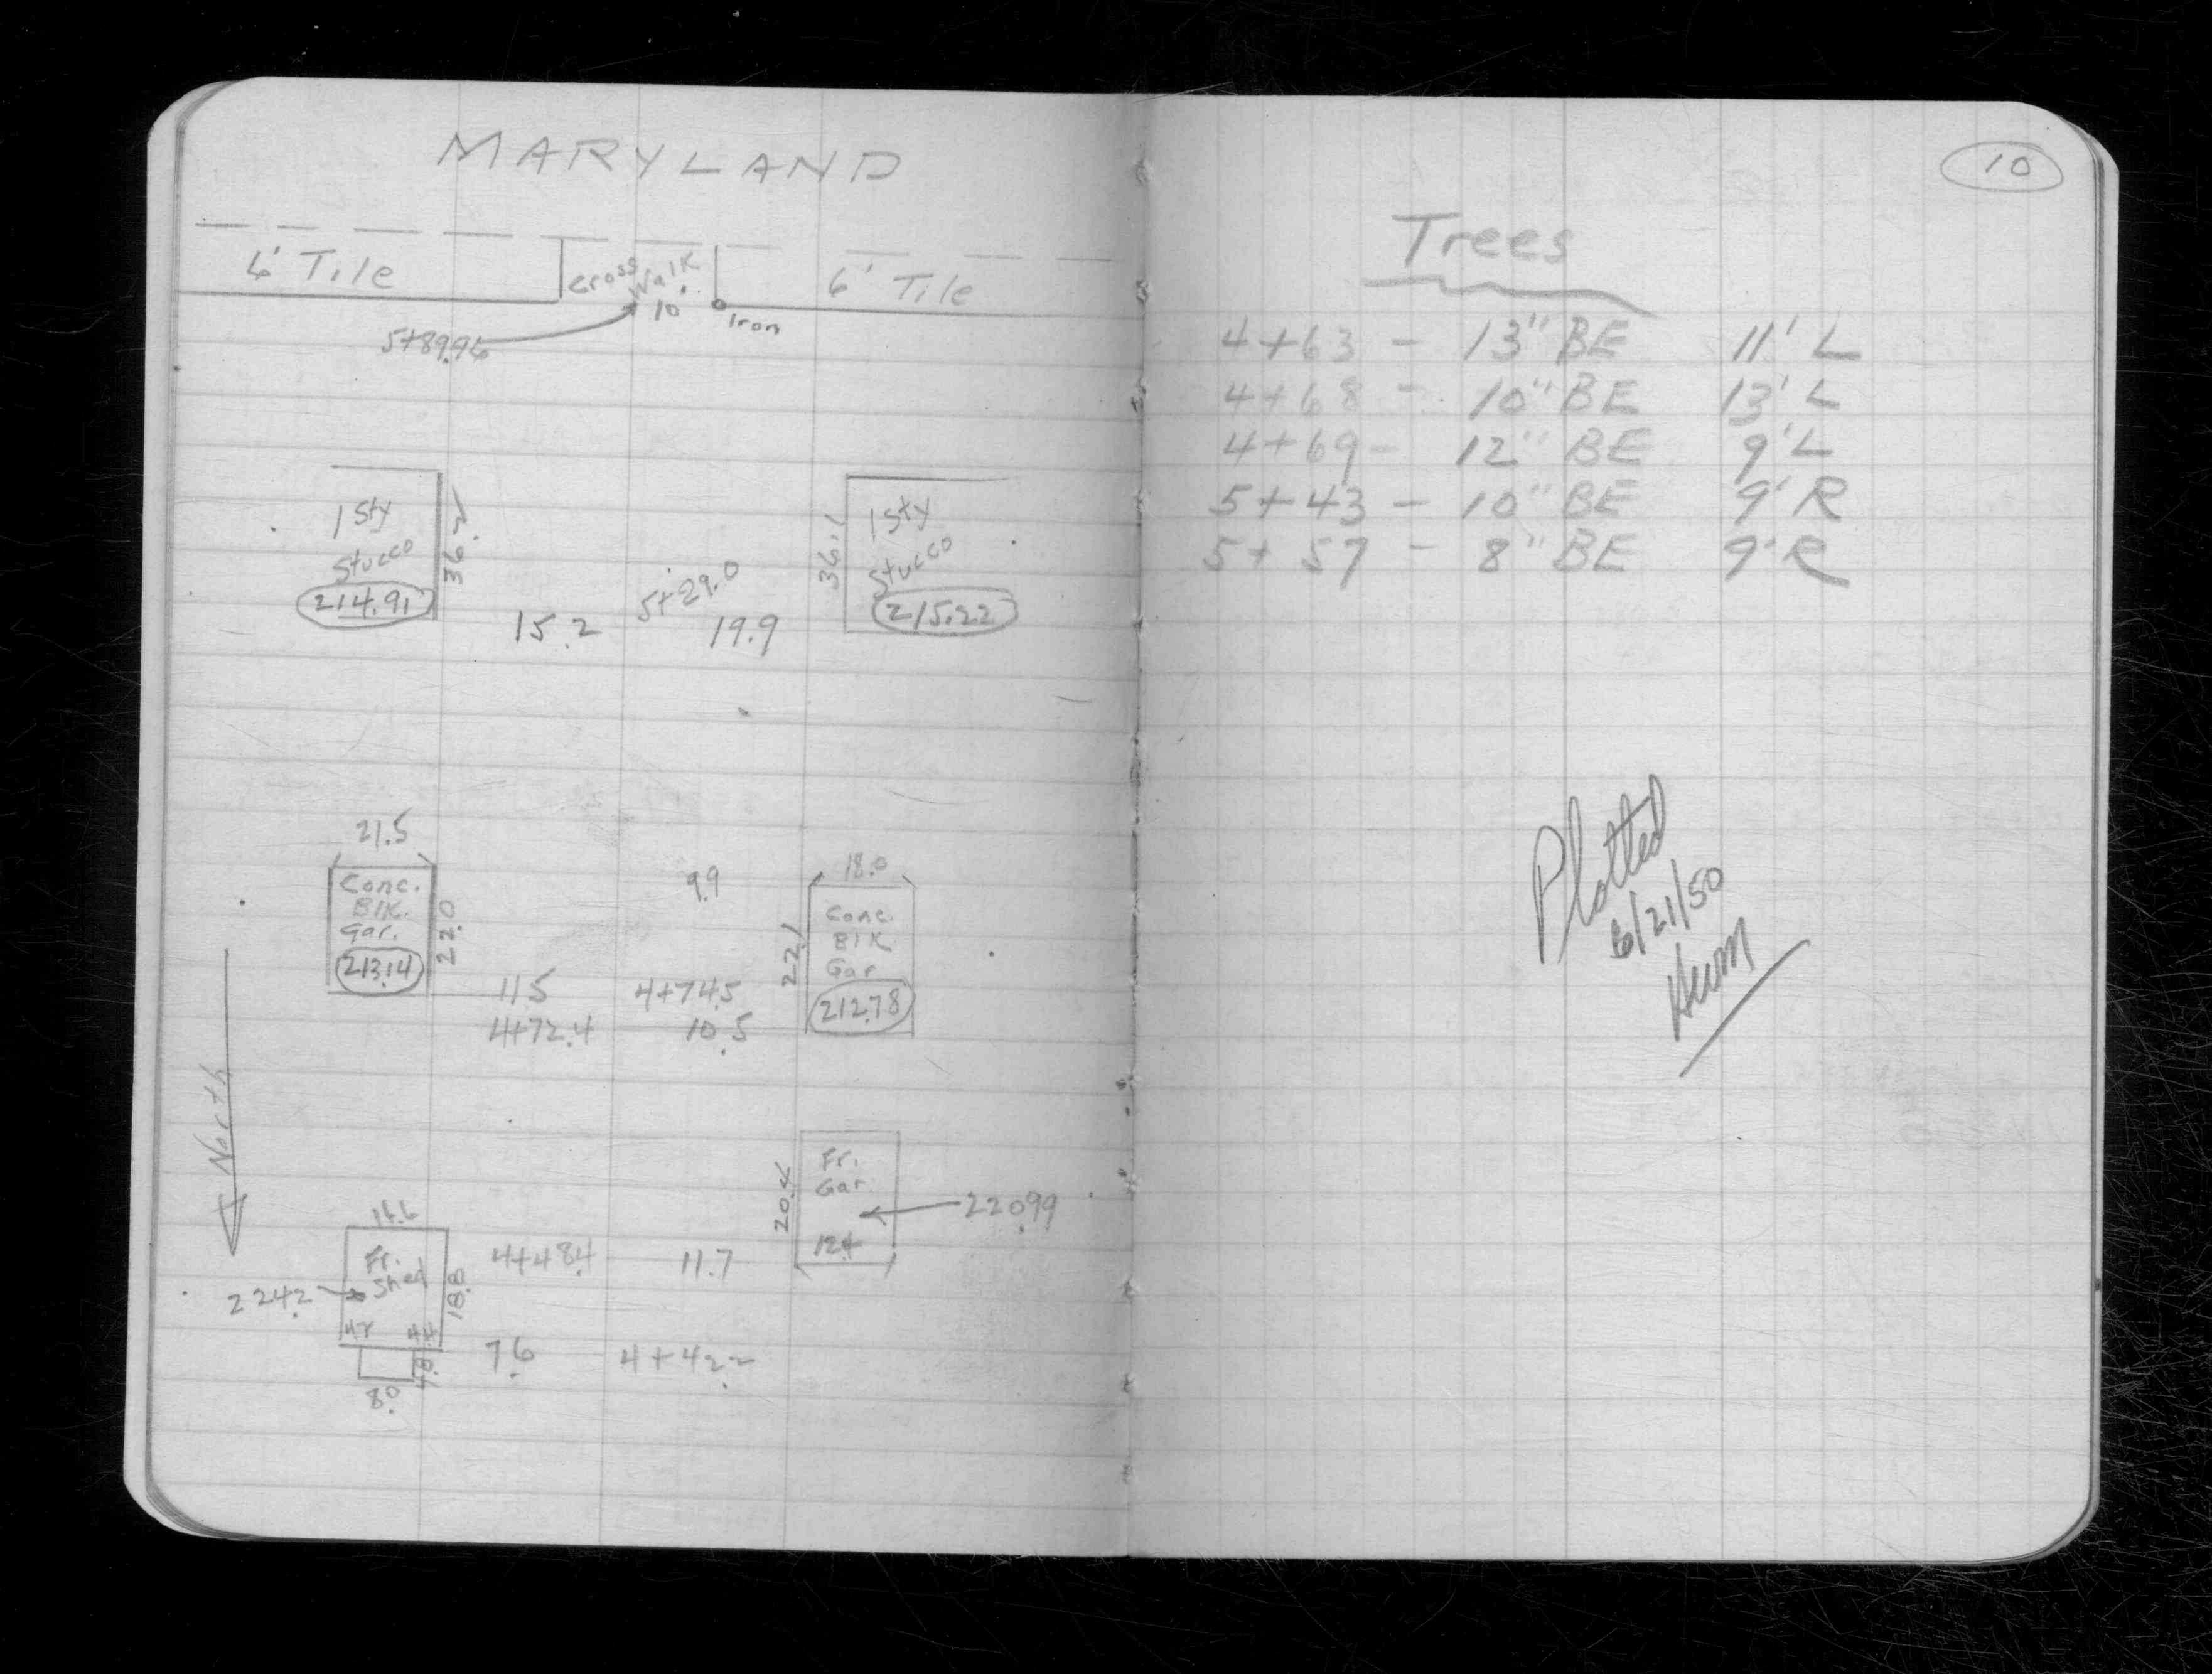 MARYLAND
6' Tile
Cross Walk
10'
6' Tile
Iron
5+89.96
1 Sty
Stucco
214.91
36.2
15.2
5+29.0
19.9
36.1
1 Sty
Stucco
215.22
21.5
Conc.
Blk.
Gar.
213.14
22.0
9.9
18.0
Conc.
Blk
Gar
212.78
22.1
11.5
4+74.5
4+72.4
10.5
North
Fr.
Gar.
20.4
12.4
220.99
16.6
Fr.
Shed
224.2
18.8
4+48.4
11.7
4.4
4.8
8.0
7.6
4+42.2
10
Trees
4+63 - 13" BE 11' L
4+68 - 10" BE 13' L
4+69 - 12" BE 9' L
5+43 - 10" BE 9' R
5+57 - 8" BE 9' R
Plotted
6/21/50